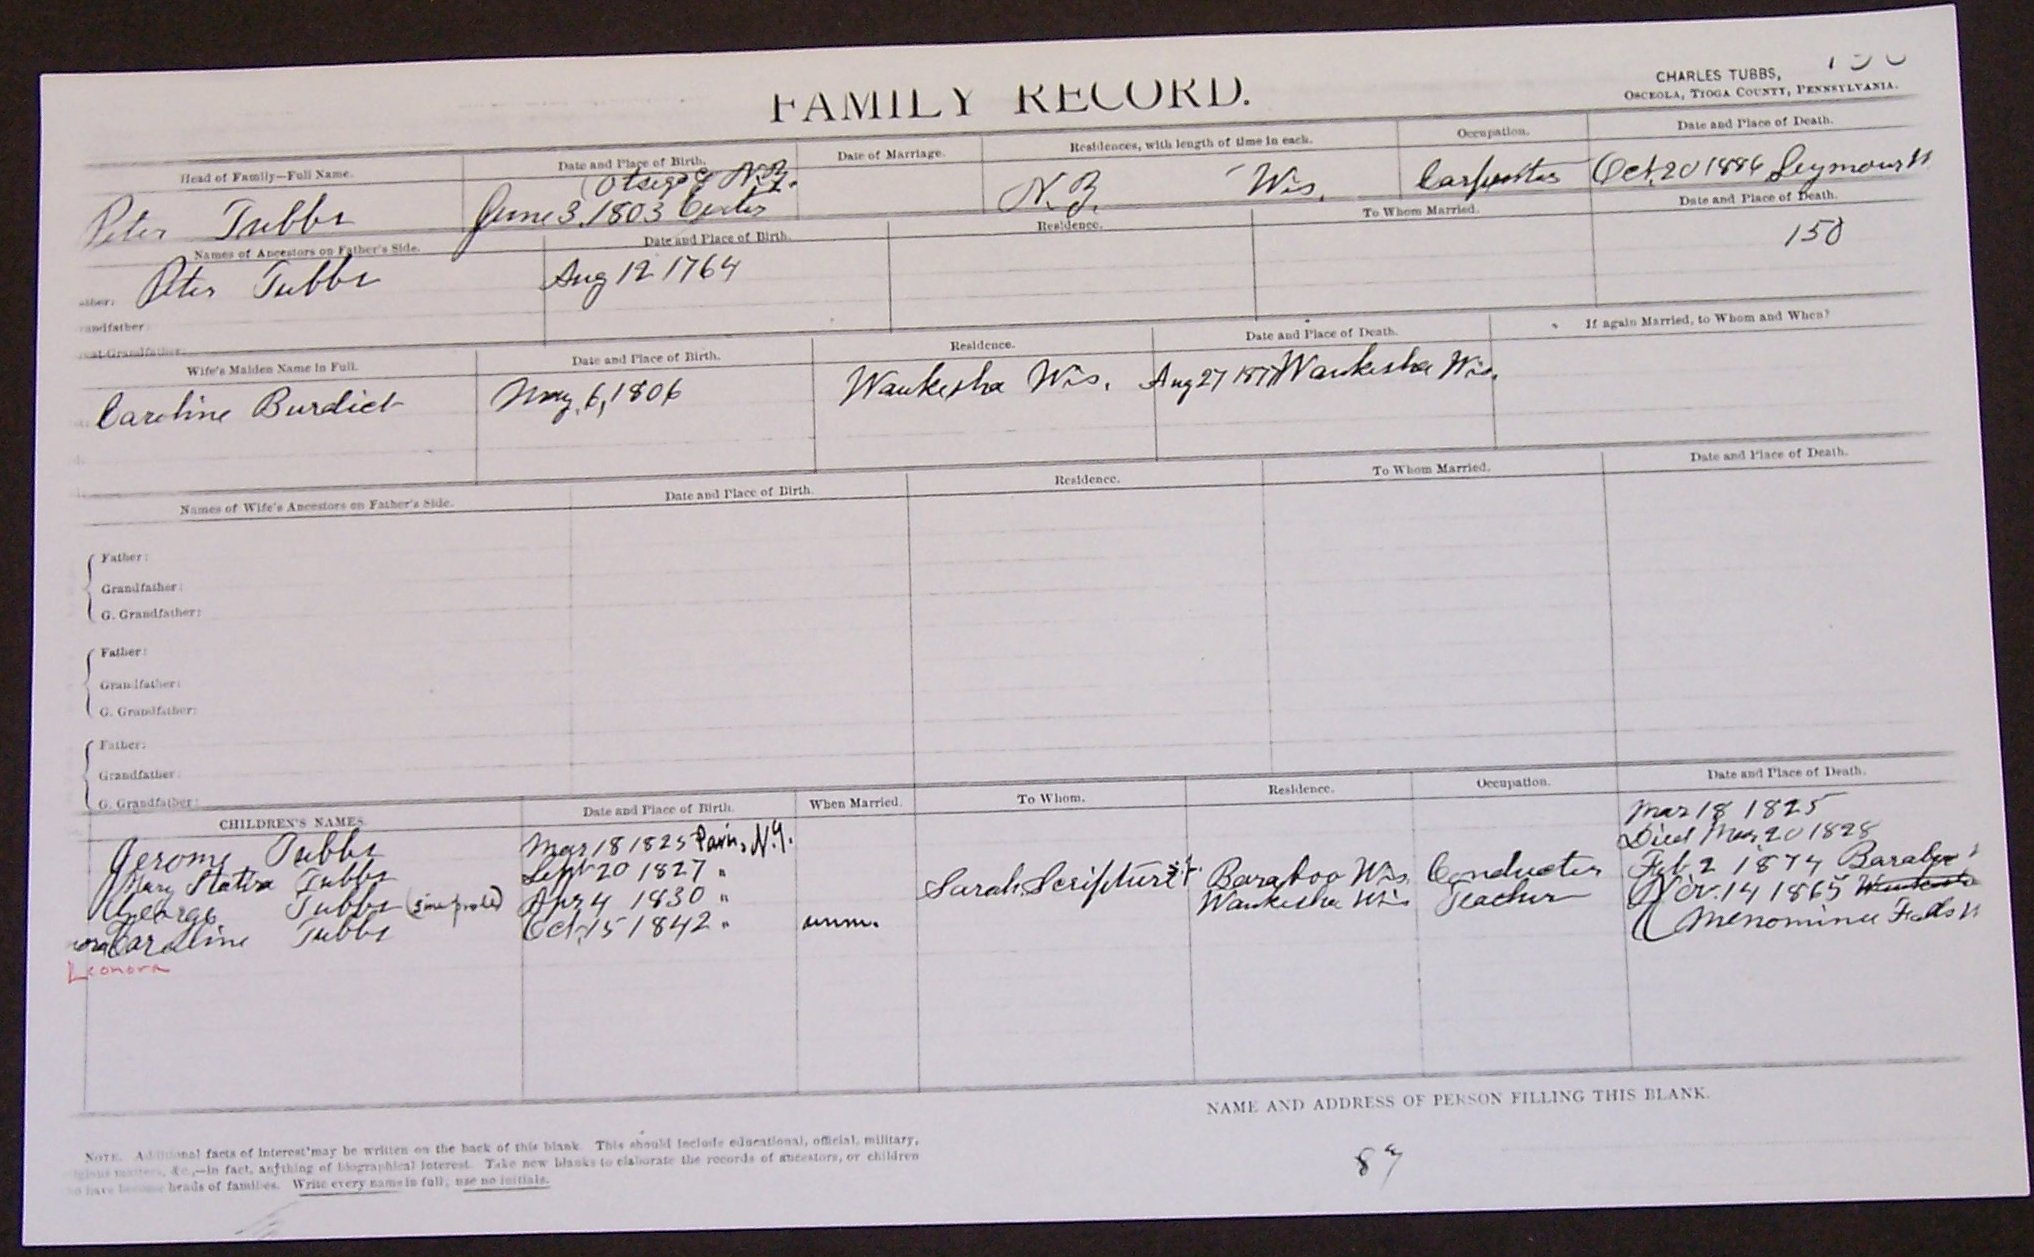 FAMILY RECORD.
CHARLES TUBBS,
OSCEOLA, TIOGA COUNTY, PENNSYLVANIA.
Head of Family—Full Name. Date and Place of Birth. Date of Marriage. Residences, with length of time in each. Occupation. Date and Place of Death.
Otsego N.Y.
Peter Tubbs June 3, 1803 N.Y. Wis. Carpenter Oct. 20 1886 Seymour
Names of Ancestors on Father's Side. Date and Place of Birth. Residence. To Whom Married. Date and Place of Death.
Peter Tubbs Aug 12 1764 150
andfather
Wife's Maiden Name in Full. Date and Place of Birth. Residence. Date and Place of Death. If again Married, to Whom and When?
Caroline Burdict May, 6, 1806 Waukesha Wis. Aug 27 Waukesha Wis.
Names of Wife's Ancestors on Father's Side. Date and Place of Birth. Residence. To Whom Married. Date and Place of Death.
Father:
Grandfather:
G. Grandfather:
Father:
Grandfather:
G. Grandfather:
Father:
Grandfather:
G. Grandfather:
CHILDREN'S NAMES. Date and Place of Birth. When Married. To Whom. Residence. Occupation. Date and Place of Death.
Jerome Tubbs Mar 18 1825 Paris, N.Y. Mar 18 1825
Mary Statira Tubbs Sept 20 1827 " Died May 20 1828
George Tubbs Apr 4 1830 " Sarah Baraboo Wis. Conductor Feb 2 1874 Baraboo
Caroline Tubbs Oct. 15 1842 " unm. Waukesha Wis Teacher Nov. 14 1865
Menominee Falls
Leonora
NAME AND ADDRESS OF PERSON FILLING THIS BLANK.
NOTE. Additional facts of interest may be written on the back of this blank. This should include educational, official, military,
religious matters, &c.,—in fact, anything of biographical interest. Take new blanks to elaborate the records of ancestors, or children
who have become heads of families. Write every name in full, use no initials.
87